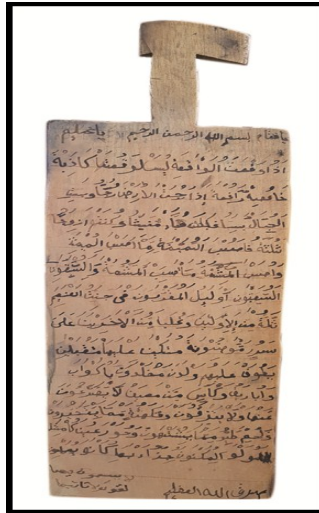 يا فتاح بسم الله الرحمن الرحيم يا عليم
اذا وقعت الواقعة ليس لوقعتها كاذبة
خافضة رافعة اذا رجت الارض رجا وبست
الجبال بسا فكانت هباء منبثا وكنتم ازوجا
ثلثة فاصحب الميمنة ما اصحب الميمنة
واصحب المشئمة ما اصحب المشئمة والسبقون
السبقون اوليك المقربون في جنت النعيم
ثلة من الاولين وقليل من الاخرين على
سرر موضونة متكئين عليها متقبلين
يطوف عليهم ولدن مخلدون باكواب
واباريق وكاس من معين لا يصدعون
عنها ولا ينزفون وفكهة مما يتخيرون
ولحم طير مما يشتهون وحور عين كامثل
اللولو المكنون جزاء بما كانوا يعملون
لا يسمعون فيها
صدق الله العظيم لغوا ولا تاثيما